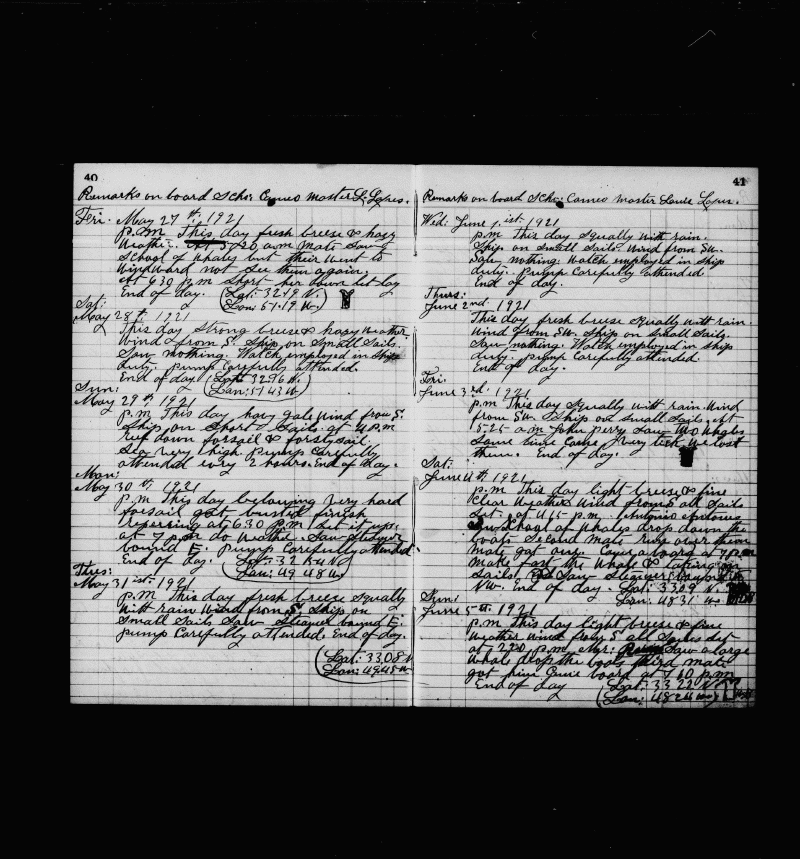 40
Remarks on board Scho: Cameo master L. Lopes.
Fri. May 27th 1921
p.m This day fresh breese & hazy
Weathe. At 5-20 a.m Mate Saw a
School of Whales but their Went to
Windward not See them again.
At 630 p.m Short her down let lay
End of day. Lat: 3219 N.
Lon: 5119 W.
Sat:
May 28th 1921
This day Strong breese & hazy Weather
Wind from S. Ship on Small Sails.
Saw nothing. Watch employed in Ship
duty. pump Carefully attended.
End of day Lat: 3296 N.
Lon: 5143 W
Sun:
May 29th 1921
p.m This day havy gale Wind from S.
Ship on Short Sails at 4 p.m
reef down forsail & forstysail.
Sea very high pump Carefully
attended evry 2 hours. End of day.
Mon:
May 30th 1921
p.m This day blowing Very hard
forsail got busted finish
repersing at 630 p.m Set it up:
at 7 p.m do Weathe. Saw Steamer
bound E. pump Carefully attended.
End of day. Lat: 32 N
Lon: 49 48 W.
Thres:
May 31ist: 1921
p.m This day fresh breese Squally
Witt rain Wind from S. Ship on
Small Sails Saw Steamer bound E.
pump Carefully attended. End of day.
Lat: 33,08 N
Lon: 49,48 W
41
Remarks on board Scho: Cameo master Louie Lopes.
Wed: June 1.ist: 1921
p.m This day Squally Witt rain.
Ship on Small Sails Wind from SW.
Saw nothing Watch employed in Ship
duty. pump Carefully attended
End of day.
Thurs:
June 2nd 1921
This day fresh breese Squally Witt rain.
Wind from SW. Ship on Small Sails.
Saw nothing. Watch employed in Ship
duty. pump Carefully attended.
End of day.
Fri:
June 3rd: 1921
p.m This day Squally Witt rain. Wind
from SW. Ship on Small Sails. At
5-25 a.m John perry Saw two Whales
Came Very we lost
them. End of day.
Sat:
June 4th 1921
p.m This day light breese & fine
Clear Weather Wind from all Sails
Set. at 4 15 p.m.
Saw School of Whales drop down the
boats Second mate
mate got one. Came a board at 7 p.m
Make fast the Whale & taking in
Sails. Saw Steamer bound
NW. End of day. Lat: 3309 N.
Lon: 4831 W.
Sun:
June 5th: 1921
p.m This day light breese & fine
Weather Wind from S all Sails Set
at 220 p.m Saw a large
Whale drop the boats third mate
got him Came board at 7 10 p.m
End of day Lat: 33 22 N
Lon: 4824 W